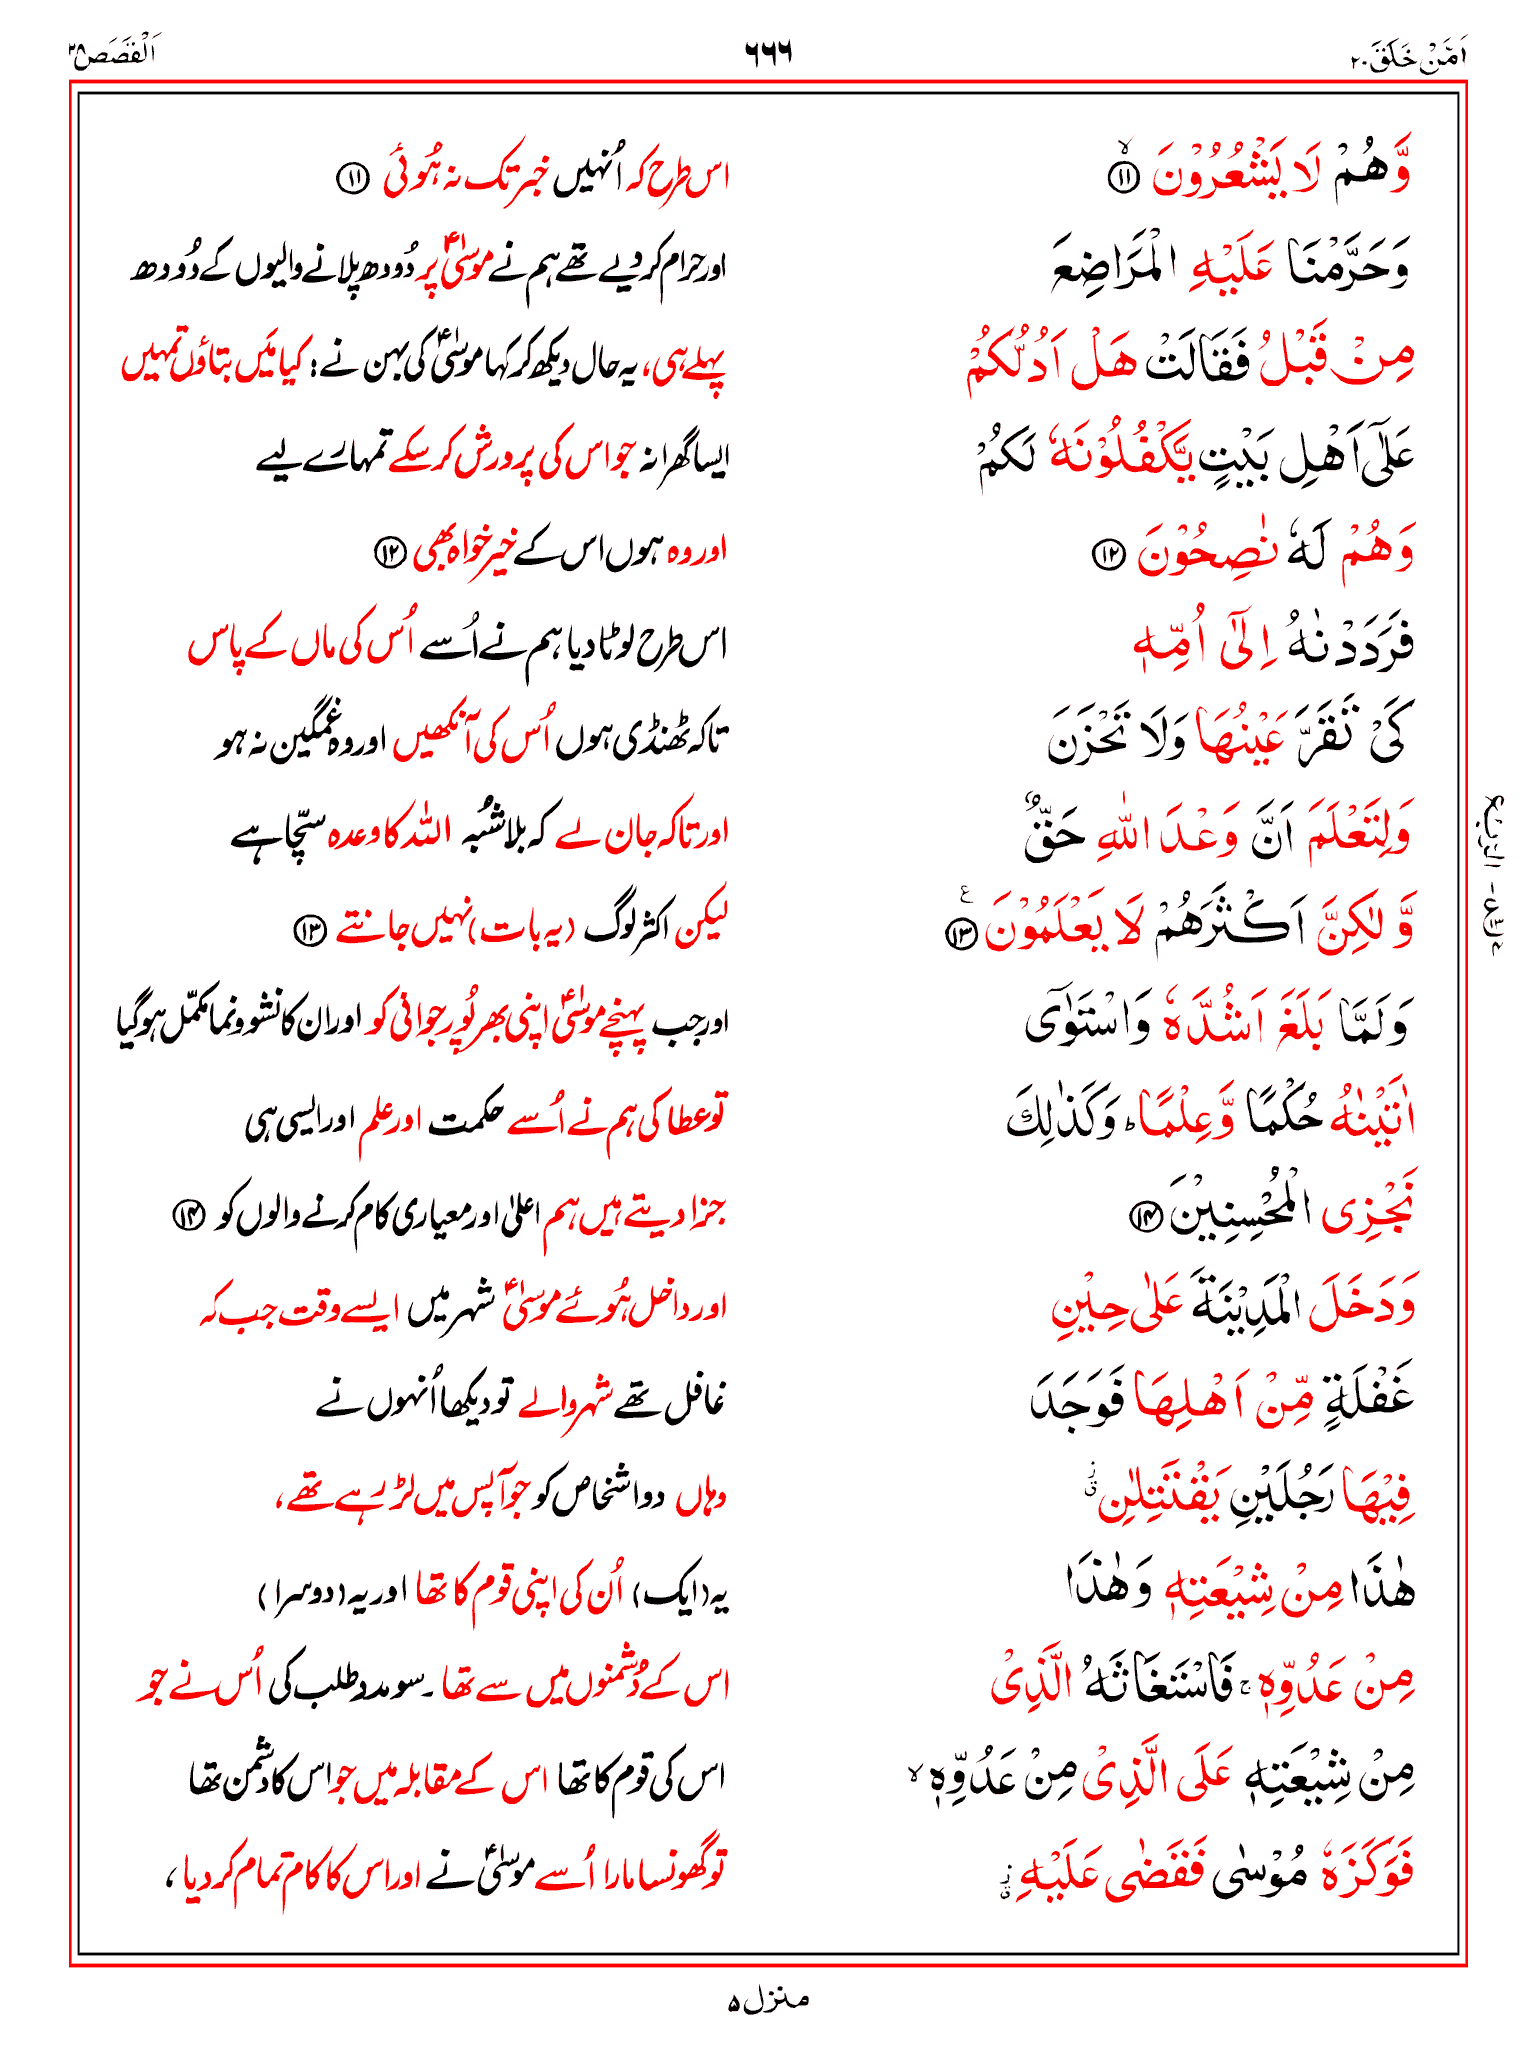 اَمَّنْ خَلَقَ ۲۰
۶۶۶
اَلْقَصَص ۲۸
وَّهُمْ لَا يَشْعُرُوْنَ ۙ‏ ﴿۱۱﴾
اس طرح کہ اُنہیں خبر تک نہ ہُوئی ﴿۱۱﴾
وَحَرَّمْنَا عَلَيْهِ الْمَرَاضِعَ
اور حرام کر دیے تھے ہم نے موسٰیؑ پر دُودھ پلانے والیوں کے دُودھ
مِنْ قَبْلُ فَقَالَتْ هَلْ اَدُلُّكُمْ
پہلے ہی، یہ حال دیکھ کر کہا موسٰیؑ کی بہن نے: کیا مَیں بتاؤں تمہیں
عَلٰٓى اَهْلِ بَيْتٍ يَّكْفُلُوْنَهٗ لَكُمْ
ایسا گھرانہ جو اس کی پرورش کر سکے تمہارے لیے
وَهُمْ لَهٗ نٰصِحُوْنَ ﴿۱۲﴾
اور وہ ہوں اس کے خیر خواہ بھی ﴿۱۲﴾
فَرَدَدْنٰهُ اِلٰٓى اُمِّهٖ
اس طرح لوٹا دیا ہم نے اُسے اُس کی ماں کے پاس
كَىْ تَقَرَّ عَيْنُهَا وَلَا تَحْزَنَ
تاکہ ٹھنڈی ہوں اُس کی آنکھیں اور وہ غمگین نہ ہو
وَلِتَعْلَمَ اَنَّ وَعْدَ اللّٰهِ حَقٌّ
اور تاکہ جان لے کہ بلا شُبہ اللّٰہ کا وعدہ سچّا ہے
وَّلٰكِنَّ اَكْثَرَهُمْ لَا يَعْلَمُوْنَ ﴿۱۳﴾ ۧ
لیکن اکثر لوگ (یہ بات) نہیں جانتے ﴿۱۳﴾
وَلَمَّا بَلَغَ اَشُدَّهٗ وَاسْتَوٰٓى
اور جب پہنچے موسٰیؑ اپنی بھرپُور جوانی کو اور ان کا نشوونما مکمّل ہو گیا
اٰتَيْنٰهُ حُكْمًا وَّعِلْمًا ؕ وَكَذٰلِكَ
تو عطا کی ہم نے اُسے حکمت اور علم اور ایسی ہی
نَجْزِى الْمُحْسِنِيْنَ ﴿۱۴﴾
جزا دیتے ہیں ہم اعلیٰ اور معیاری کام کرنے والوں کو ﴿۱۴﴾
وَدَخَلَ الْمَدِيْنَةَ عَلٰى حِيْنِ
اور داخل ہُوئے موسٰیؑ شہر میں ایسے وقت جب کہ
غَفْلَةٍ مِّنْ اَهْلِهَا فَوَجَدَ
غافل تھے شہر والے تو دیکھا اُنہوں نے
فِيْهَا رَجُلَيْنِ يَقْتَتِلٰنِ ۗ‏ز
وہاں دو اشخاص کو جو آپس میں لڑ رہے تھے،
هٰذَا مِنْ شِيْعَتِهٖ وَهٰذَا
یہ (ایک) اُن کی اپنی قوم کا تھا اور یہ (دوسرا)
مِنْ عَدُوِّهٖ ۚ فَاسْتَغَاثَهُ الَّذِىْ
اس کے دُشمنوں میں سے تھا۔ سو مدد طلب کی اُس نے جو
مِنْ شِيْعَتِهٖ عَلَى الَّذِىْ مِنْ عَدُوِّهٖ ۙ
اس کی قوم کا تھا اس کے مقابلہ میں جو اس کا دشمن تھا
فَوَكَزَهٗ مُوْسٰى فَقَضٰى عَلَيْهِ ۗ‏ز
تو گھونسا مارا اُسے موسٰیؑ نے اور اس کا کام تمام کر دیا،
الرّبع
منزل ۵